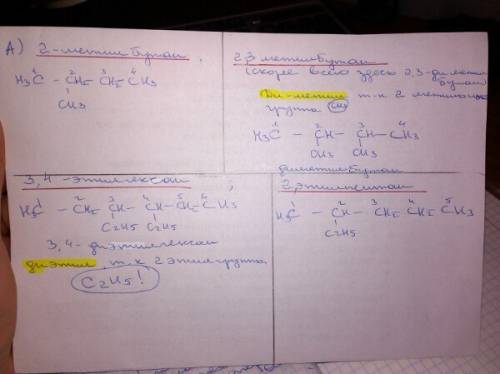 А) 2-метилбутан,
H₃C¹ - CH₂ - CH₂ - CH₃
CH₃
2,3 метилбутан
(скорее всего здесь 2,3-диметил
бутан)
Ди-метил т-к 2 метильные
группа CH₃
H₃C¹ - CH² - CH³ - C⁴H₃
CH₃ CH₃
диметилбутан
3,4 -этилгексан ;
H₃C¹ - C²H₂ - C³H - C⁴H - C⁵H₂ - C⁶H₃
C₂H₅ C₂H₅
3,4-диэтилгексан
диэтил, т-к 2 этил группа
C₂H₅!
2,этилпентан
H₃C¹ - C²H - C³H₂ - C⁴H₂ - C⁵H₃
C₂H₅